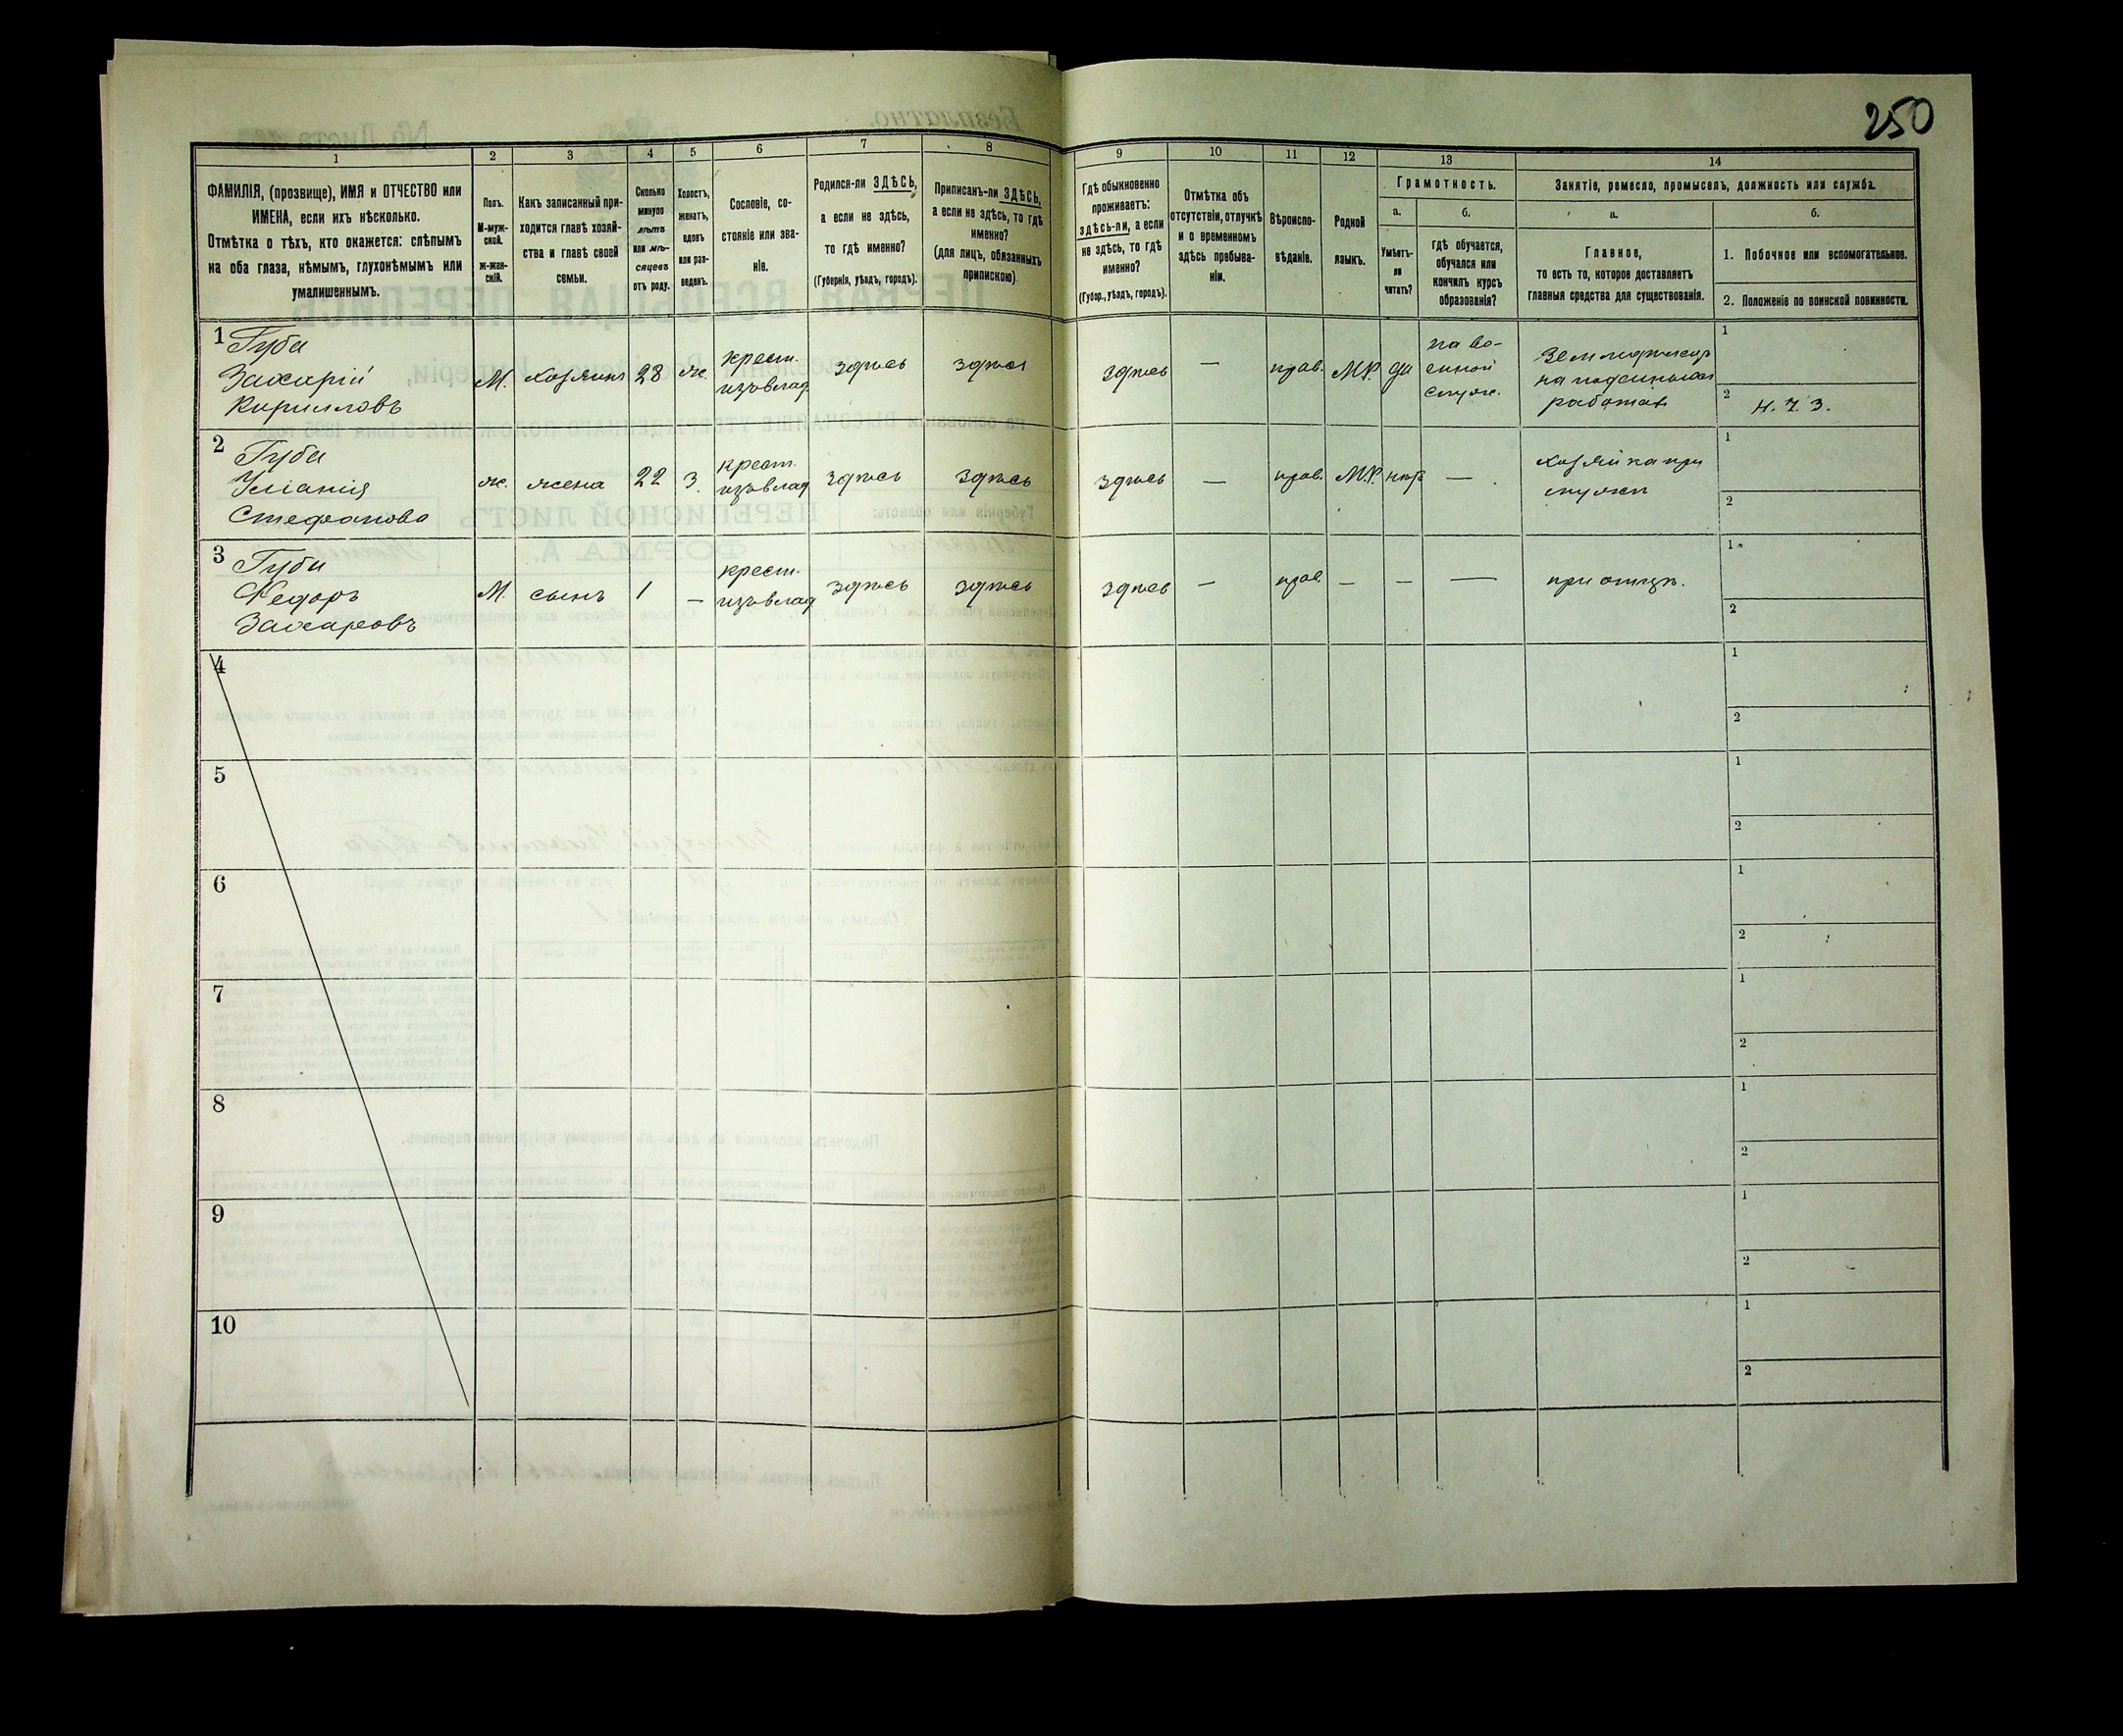 250
1
2
3
4
5
6
7
8
9
10
11
12
13
14
ФАМИЛІЯ, (прозвище), ИМЯ и ОТЧЕСТВО или
ИМЕНА, если ихъ нѣсколько.
Отмѣтка о тѣхъ, кто окажется: слѣпымъ
на оба глаза, нѣмымъ, глухонѣмымъ или
умалишеннымъ.
Полъ.
М-муж-
ской.
Ж-жен-
скій.
Какъ записанный при-
ходится главѣ хозяй-
ства и главѣ своей
семьи.
Сколько
минуло
лѣтъ
или мѣ-
сяцевъ
отъ роду.
Холостъ,
женатъ,
вдовъ
или раз-
веденъ.
Сословіе, со-
стояніе или зва-
ніе.
Родился-ли ЗДѢСЬ,
а если не здѣсь,
то гдѣ именно?
(Губернія, уѣздъ, городъ).
Приписанъ-ли ЗДѢСЬ,
а если не здѣсь, то гдѣ
именно?
(для лицъ, обязанныхъ
припискою).
Гдѣ обыкновенно
проживаетъ:
здѣсь-ли, а если
не здѣсь, то гдѣ
именно?
(Губер., уѣздъ, городъ).
Отмѣтка объ
отсутствіи, отлучкѣ
и о временномъ
здѣсь пребыва-
ніи.
Вѣроиспо-
вѣданіе.
Родной
языкъ.
Грамотность.
а.
б.
Умѣетъ-
ли
читать?
гдѣ обучается,
обучался или
кончилъ курсъ
образованія?
Занятіе, ремесло, промыселъ, должность или служба.
а.
б.
Главное,
то есть то, которое доставляетъ
главныя средства для существованія.
1. Побочное или вспомогательное.
2. Положеніе по воинской повинности.
1
Губа
Захарій
Кирилловъ
М.
хозяинъ
28
ж.
крест.
изъ влад.
здѣсь
здѣсь
здѣсь
—
прав.
М.Р.
да
на во-
енной
служ.
Земледѣлецъ
работа
1
2
Н. Ч. З.
2
Губа
Уліанія
Стефанова
ж.
жена
22
З.
крест.
изъ влад
здѣсь
здѣсь
здѣсь
—
прав.
М.Р.
нѣтъ
—
хозяйка при
мужѣ
1
2
3
Губа
Федоръ
Захаровъ
М.
сынъ
1
—
крест.
изъ влад
здѣсь
здѣсь
здѣсь
—
прав.
—
—
—
при отцѣ.
1
2
4
1
2
5
1
2
6
1
2
7
1
2
8
1
2
9
1
2
10
1
2